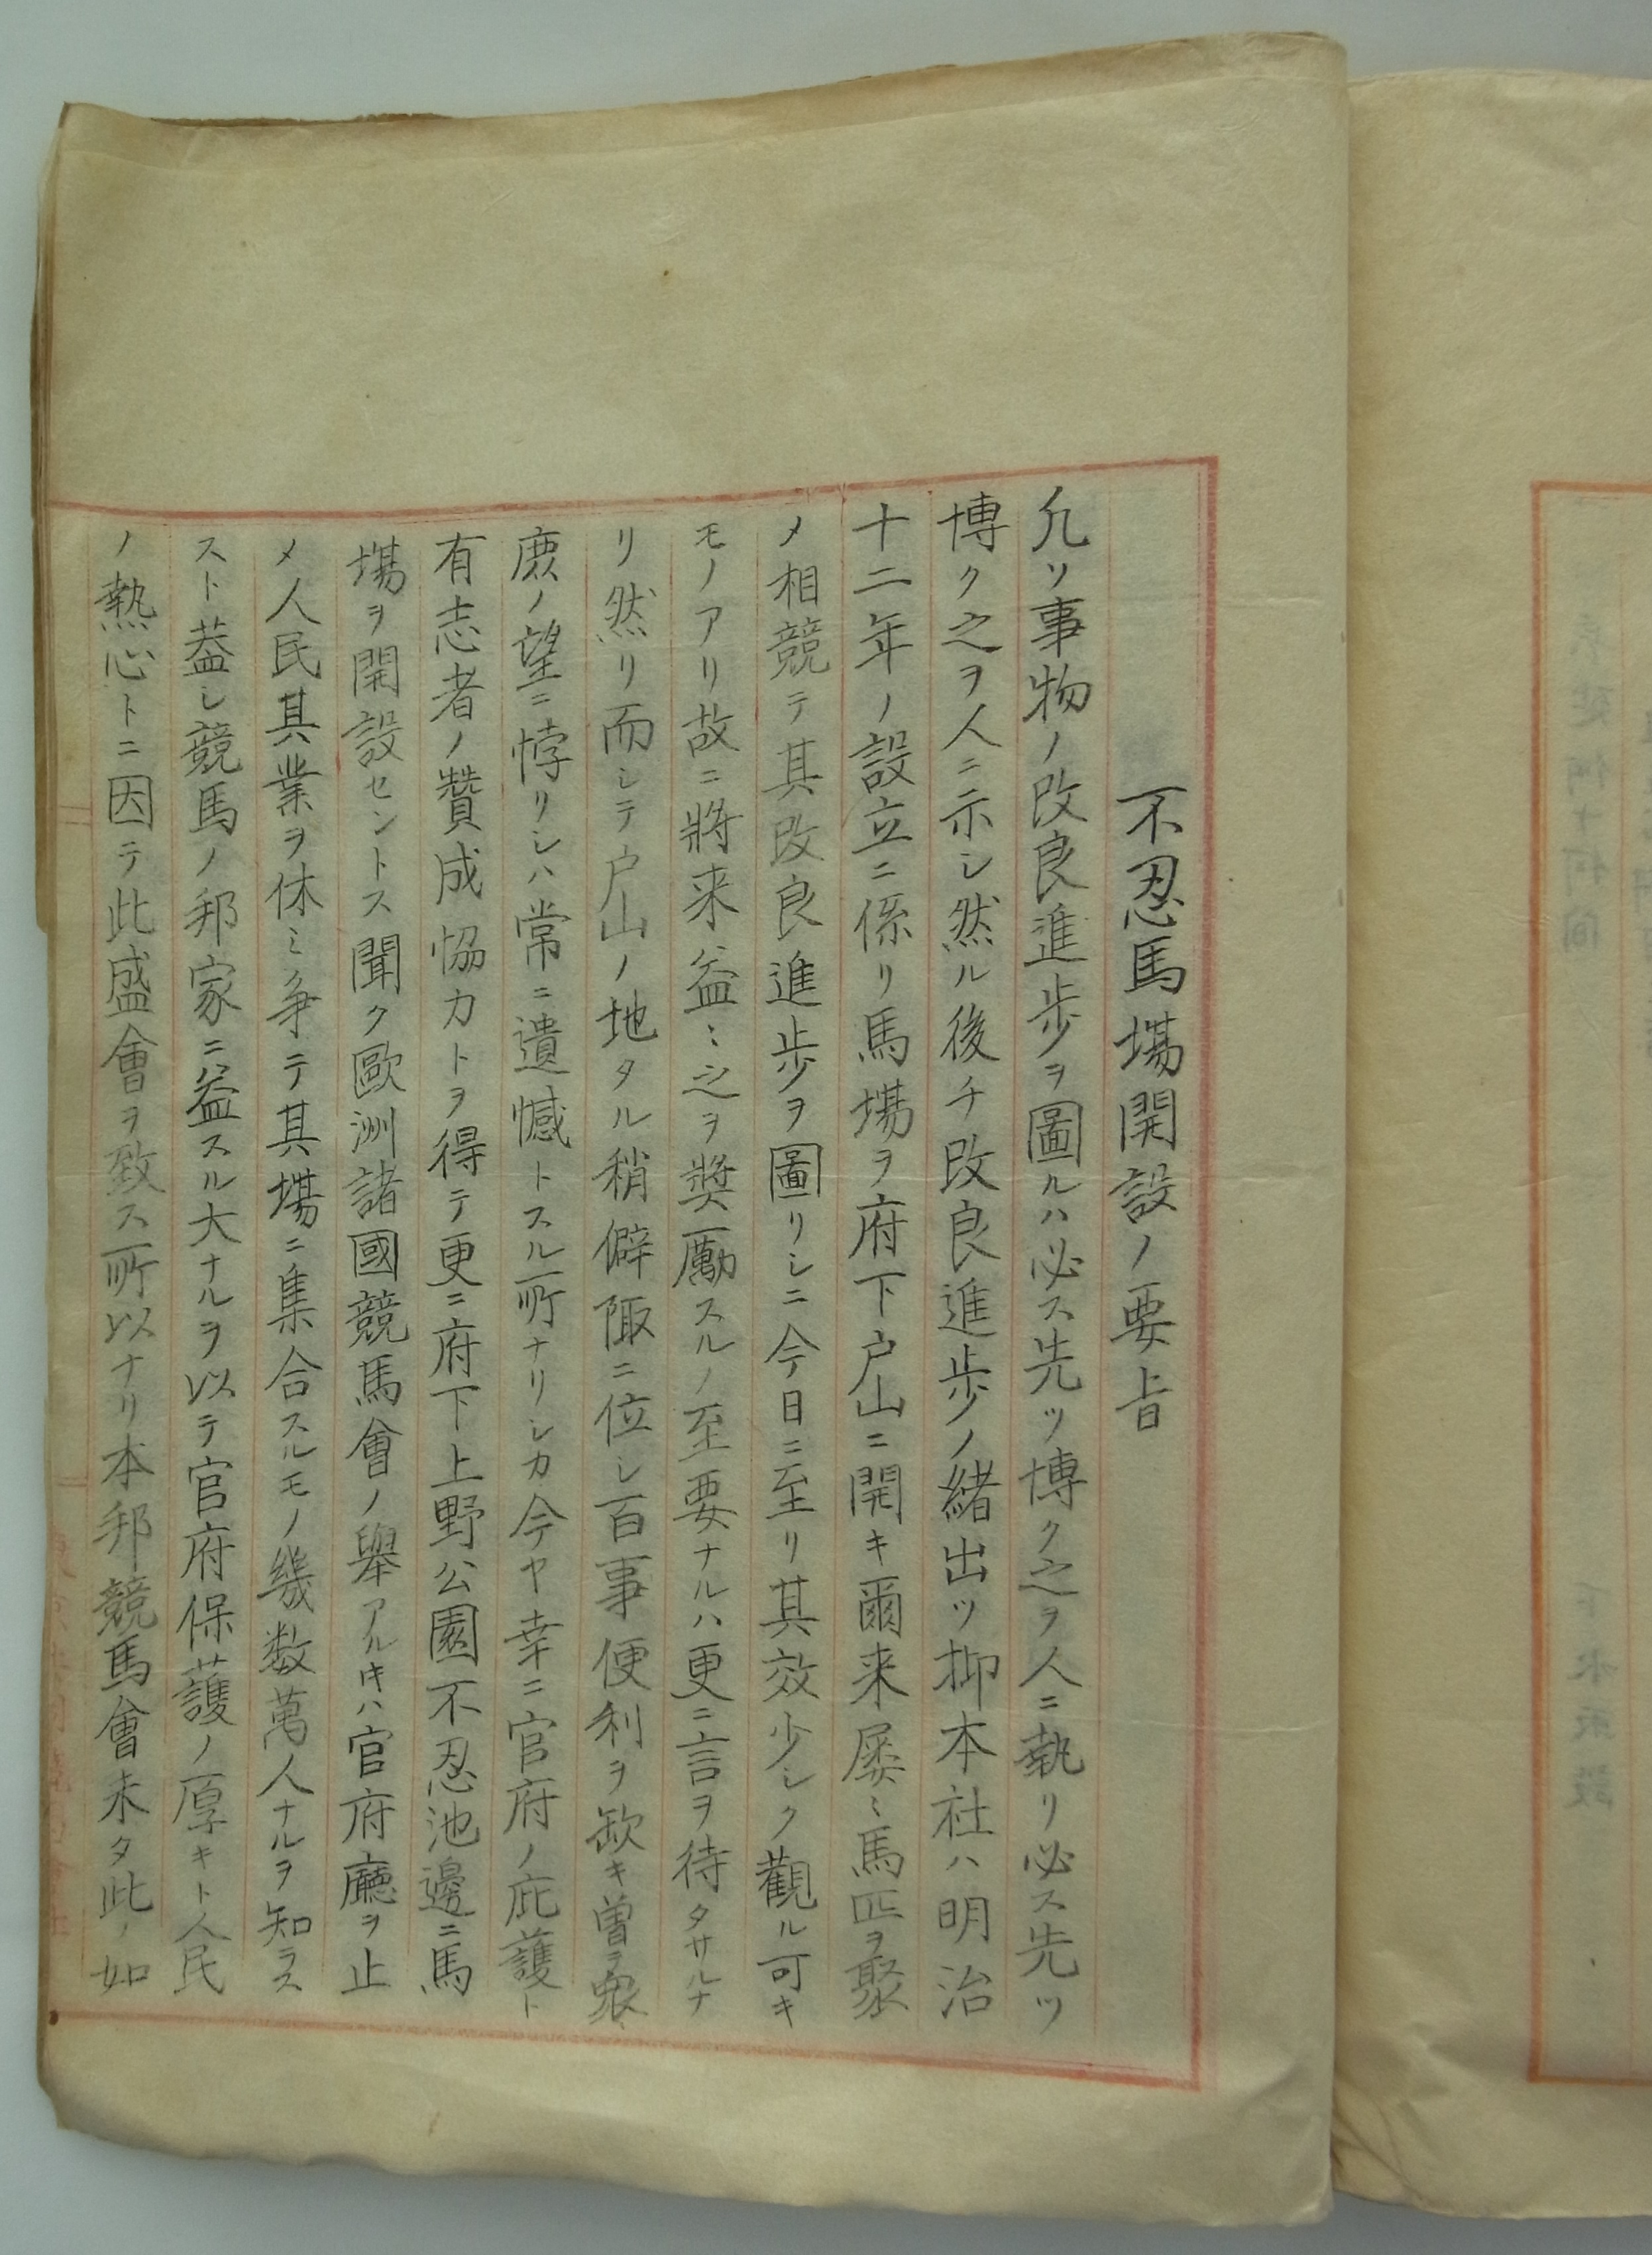 不忍馬塲開設ノ要旨
凢ソ事物ノ改良進歩ヲ圖ルハ必ス先ツ博ク之ヲ人ニ執リ必ス先ツ
博ク之ヲ人ニ示シ然ル後チ改良進歩ノ緒出ツ抑本社ハ明治
十二年ノ設立ニ係リ馬塲ヲ府下戸山ニ開キ爾来屡ミ馬匹ヲ聚
メ相競テ其改良進歩ヲ圖リシニ今日ニ至リ其效少シク觀ル可キ
モノアリ故ニ將来益ミ之ヲ奬勵スルノ至要ナルハ更ニ言ヲ待タサルナ
リ然リ而シテ戸山ノ地タル稍僻陬ニ位シ百事便利ヲ欠キ曽ヲ衆
庻ノ望ニ悖リシハ常ニ遺憾トスル所ナリシカ今ヤ幸ニ官府ノ庇護ト
有志者ノ贊成恊力トヲ得テ更ニ府下上野公園不忍池邊ニ馬
塲ヲ開設セントス聞ク歐洲諸國競馬會ノ舉アルキハ官府廳ヲ止
メ人民其業ヲ休ミ争テ其塲ニ集合スルモノ幾数萬人ナルヲ知ラス
スト葢シ競馬ノ邦家ニ益スル大ナルヲ以テ官府保護ノ厚キト人民
ノ熱心トニ因テ此盛會ヲ致ス所以ナリ本邦競馬會未タ此ノ如